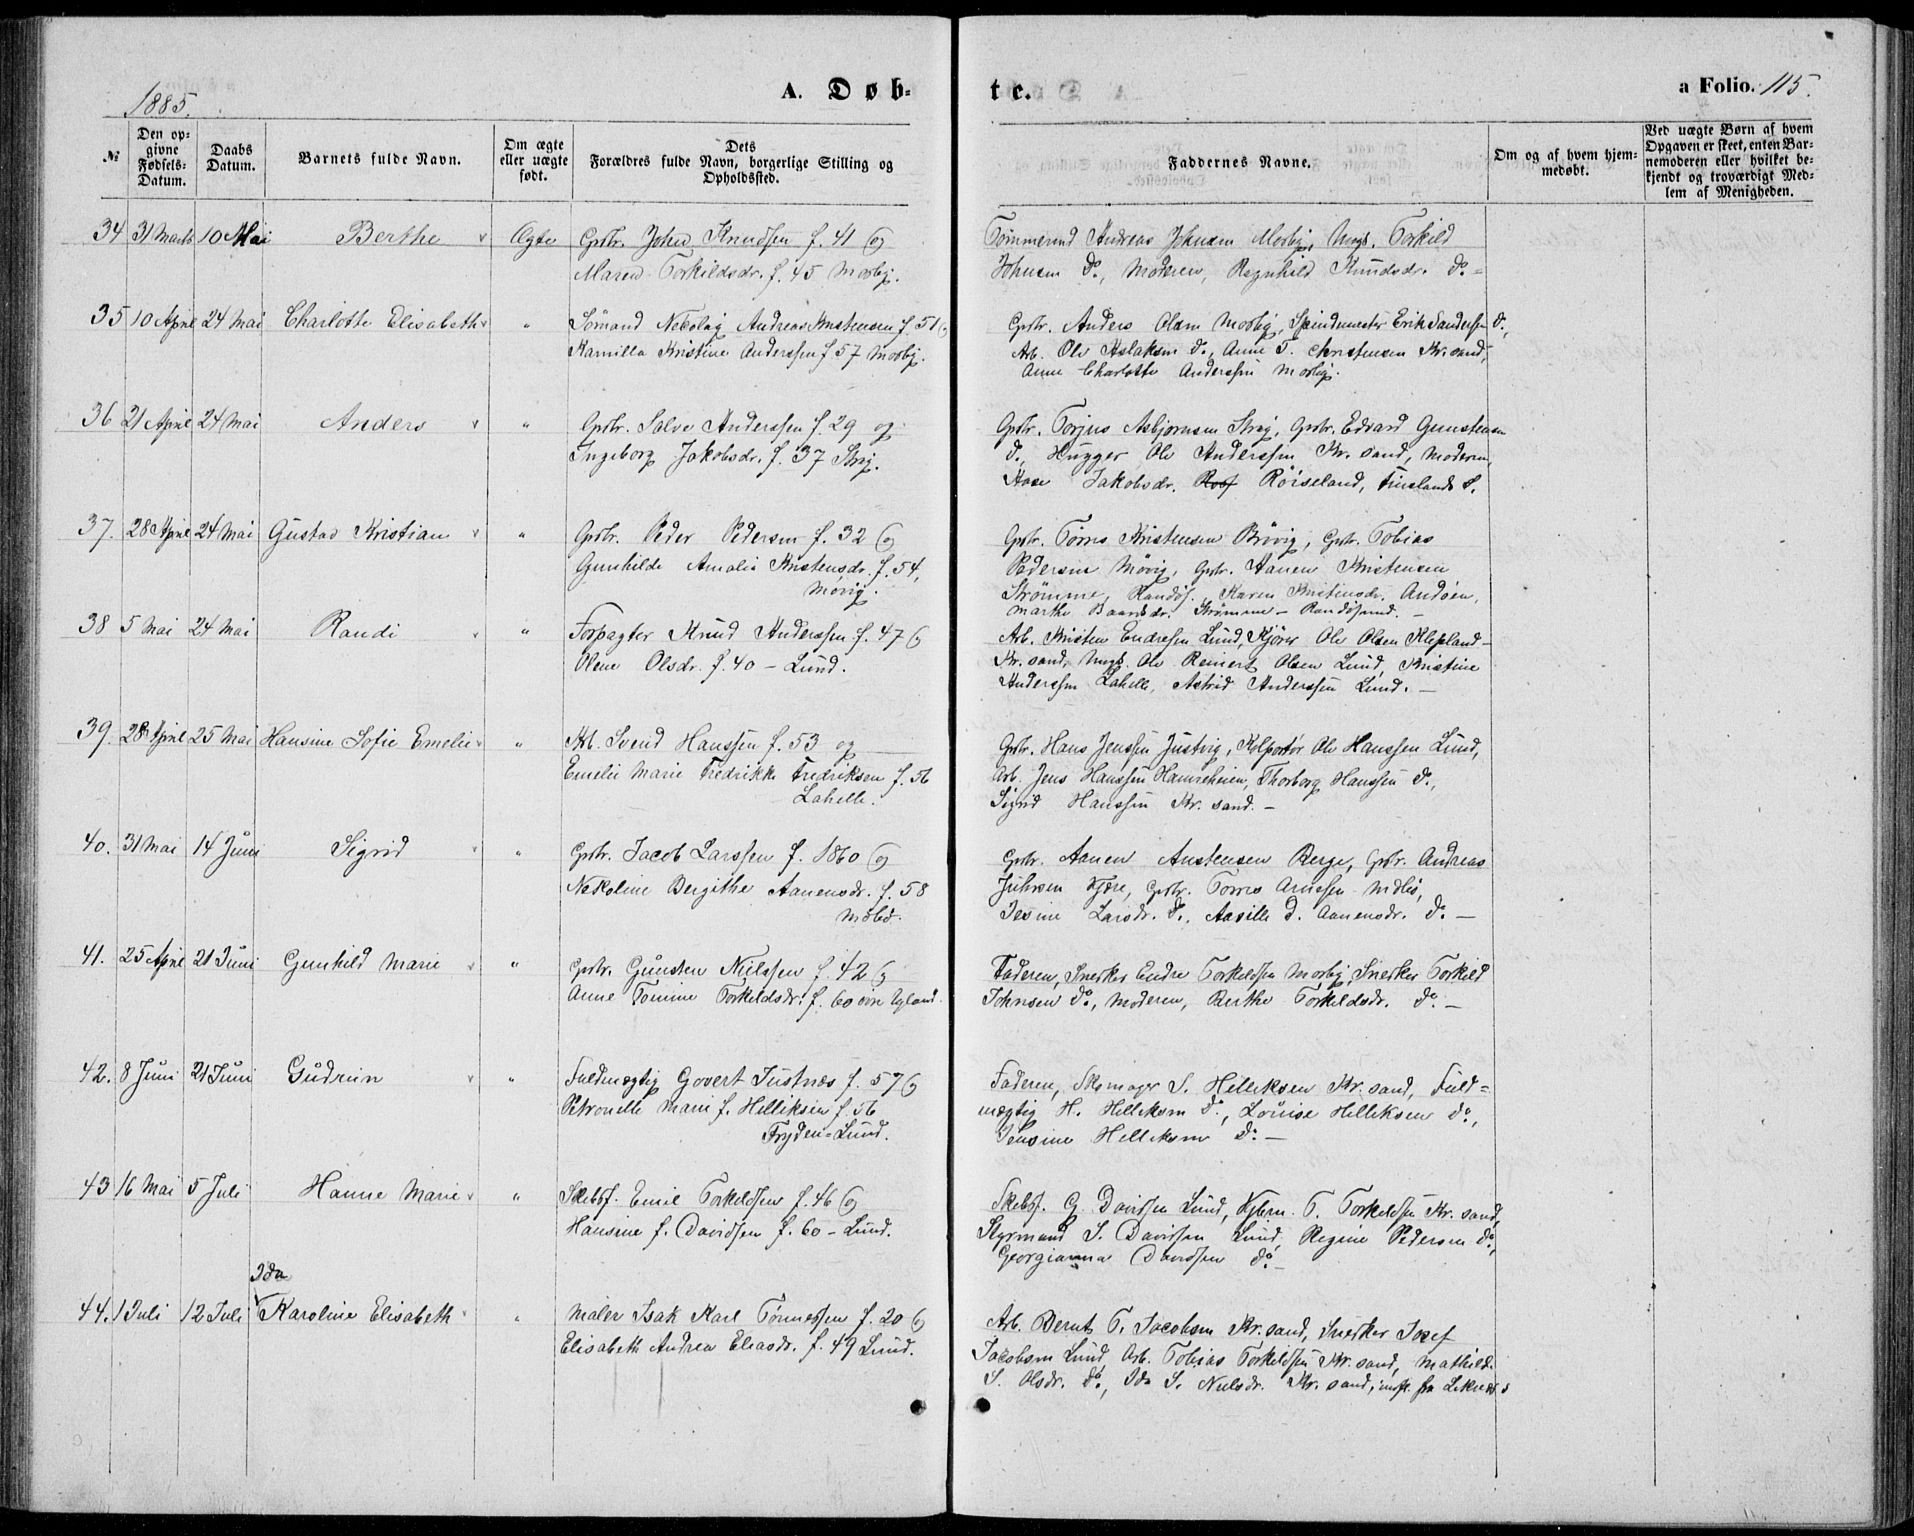 1885.
A. Døb-
te.
a Folio. 115.
№
Den op-
givne
Fødsels-
Datum.
Daabs
Datum.
Barnets fulde Navn.
Om ægte
eller uægte
født.
Dets
Forældres fulde Navn, borgerlige Stilling og
Opholdssted.
Faddernes Navne.
Om og af hvem hjem-
medøbt.
Ved uægte Børn af hvem
Opgaven er skeet, enten Bar-
nemoderen eller hvilket be-
kjendt og troværdigt Med-
lem af Menigheden.
34 31 Marts 10 Mai Berthe Ægte Gstbr. John Knudsen f. 41 og
Maren Torkildsdr. f. 45 Mosby.
Tømmermd Andreas Johnsen Mosby, Ungk. Torkild
Johnsen do., Moderen, Ragnhild Knudsdr. do. -
35 10 April 24 Mai Charlotte Elisabeth " Sømand Nekolay Andreas Kristensen f. 51 og
Kamilla Kristine Anderssen f. 57 Mosby.
Gstbr. Anders Olsen Mosby, Spindemester Erik Sandersen do.,
Arb. Ole Aslaksen do., Anne T. Christensen Kr.sand,
Anne Charlotte Anderssen Mosby.
36 21 April 24 Mai Anders " Gstbr. Salve Anderssen f. 29 og
Ingeborg Jakobsdr. f. 37 Stray.
Gstbr. Torjus Asbjørnsen Stray, Gstbr. Edvard Gunstensen
do., Hugger Ole Anderssen Kr.sand, Moderen,
Aase Jakobsdr. Røiseland, Finslands S.
37. 28 April 24 Mai Gustav Kristian " Gstbr. Peder Pedersen f. 32 og
Gunhilde Amalie Kristensdr. f. 54,
Møvig.
Gstbr. Tønnes Kristensen Bråvig, Gstbr. Tobias
Pedersen Møvig, Gstbr. Aanen Kristensen
Strømme, Randøs. Karen Kristensdr. Andøen,
Marthe Baardsdr. Strømme - Randøsund. -
38 5 Mai 24 Mai Randi " Forpagter Knud Anderssen f. 47 og
Olene Olsdr. f. 40 - Lund.
Arb. Kristen Endresen Lund, Kjører Ole Olsen Klepland -
Kr.sand, Ungk. Ole Reinert Olsen Lund, Kristine
Anderssen Lahelle, Astrid Anderssen Lund. -
39. 28 April 25 Mai Hansine Sofie Emelie " Arb. Svend Hanssen f. 53 og
Emelie Marie Fredrikke Fredriksen f. 56
Lahelle.
Gstbr. Hans Jenssen Justvig, Kolportør Ole Hanssen Lund,
Arb. Jens Hanssen Hamreheien, Thorborg Hanssen do.,
Sigrid Hanssen Kr.sand. -
40. 31 Mai 14 Juni Sigrid " Gstbr. Jacob Larssen f. 1860 og
Nekoline Bergithe Aanensdr. f. 58
Gstbr. Aanen Austensen Berge, Gstbr. Andreas
Kjære, Gstbr. Tønnes Arnesen
Larsdr. do., Aasille D. Aanensdr. do. -
41. 25 April 21 Juni Gunhild Marie " Gstbr. Gunsten Nielssen f. 42 og
Anne Tomine Torkildsdr. f. 60 øvre Egland.
Faderen, Snekker Endre Torkeldsen Mosby, Snekker Torkild
Johnsen do., Moderen, Berthe Torkildsdr. do. -
42. 8 Juni 21 Juni Gudrun " Fuldmægtig Govert Justnæs f. 57 og
Petronelle Marie f. Helliksen f. 56
Fryden - Lund.
Faderen, Skomager S. Helliksen Kr.sand, Fuld=
mægtig H. Helliksen do., Louise Helliksen do.,
Jensine Helliksen do. -
43 16 Mai 5 Juli Hanne Marie " Skibsf. Emil Torkeldsen f. 46 og
Hansine f. Davidsen f. 60 - Lund.
Skibsf. G. Davidsen Lund, Kjbm. T. Torkeldsen Kr.sand,
Styrmand S. Davidsen Lund, Regine Pedersen do.,
Georgianna Davidsen do. -
Ida
44. 1 Juli 12 Juli Karoline Elisabeth " Maler Isak Karl Tønnessen f. 20 og
Elisabeth Andrea Eliasdr. f. 49 Lund.
Arb. Bernt T. Jacobsen Kr.sand, Snekker Josef
Jacobsen Lund, Arb. Tobias Torkeldsen Kr.sand, Mathilde
S. Olsdr. do., Ida S. Nielsdr. Kr.sand,